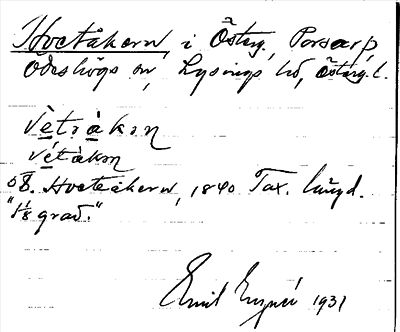 Hvetåkern, i Österg., Porsarp,
Ödeshögs sn, Lysings hd, Österg. l.
vètąàkąn
vétàkąn
Hveteåkern, 1840 Tax. längd.
"1/8 grad."
Emil 1931